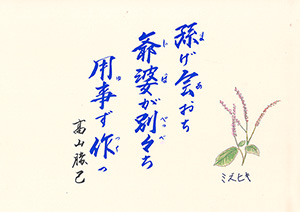 孫げ会おち
爺婆が別々ち
用事ず作っ
高山勝己
ミズヒキ